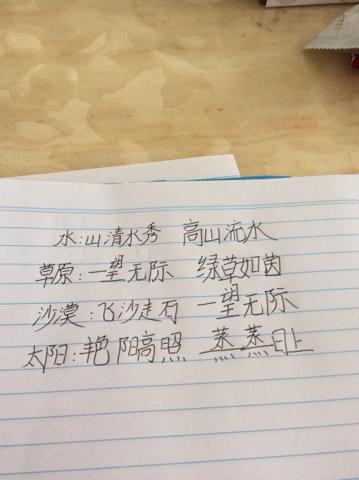 水:山清水秀 高山流水
草原:一望无际 绿草如茵
沙漠:飞沙走石 一望无际
太阳:艳阳高照 蒸蒸日上